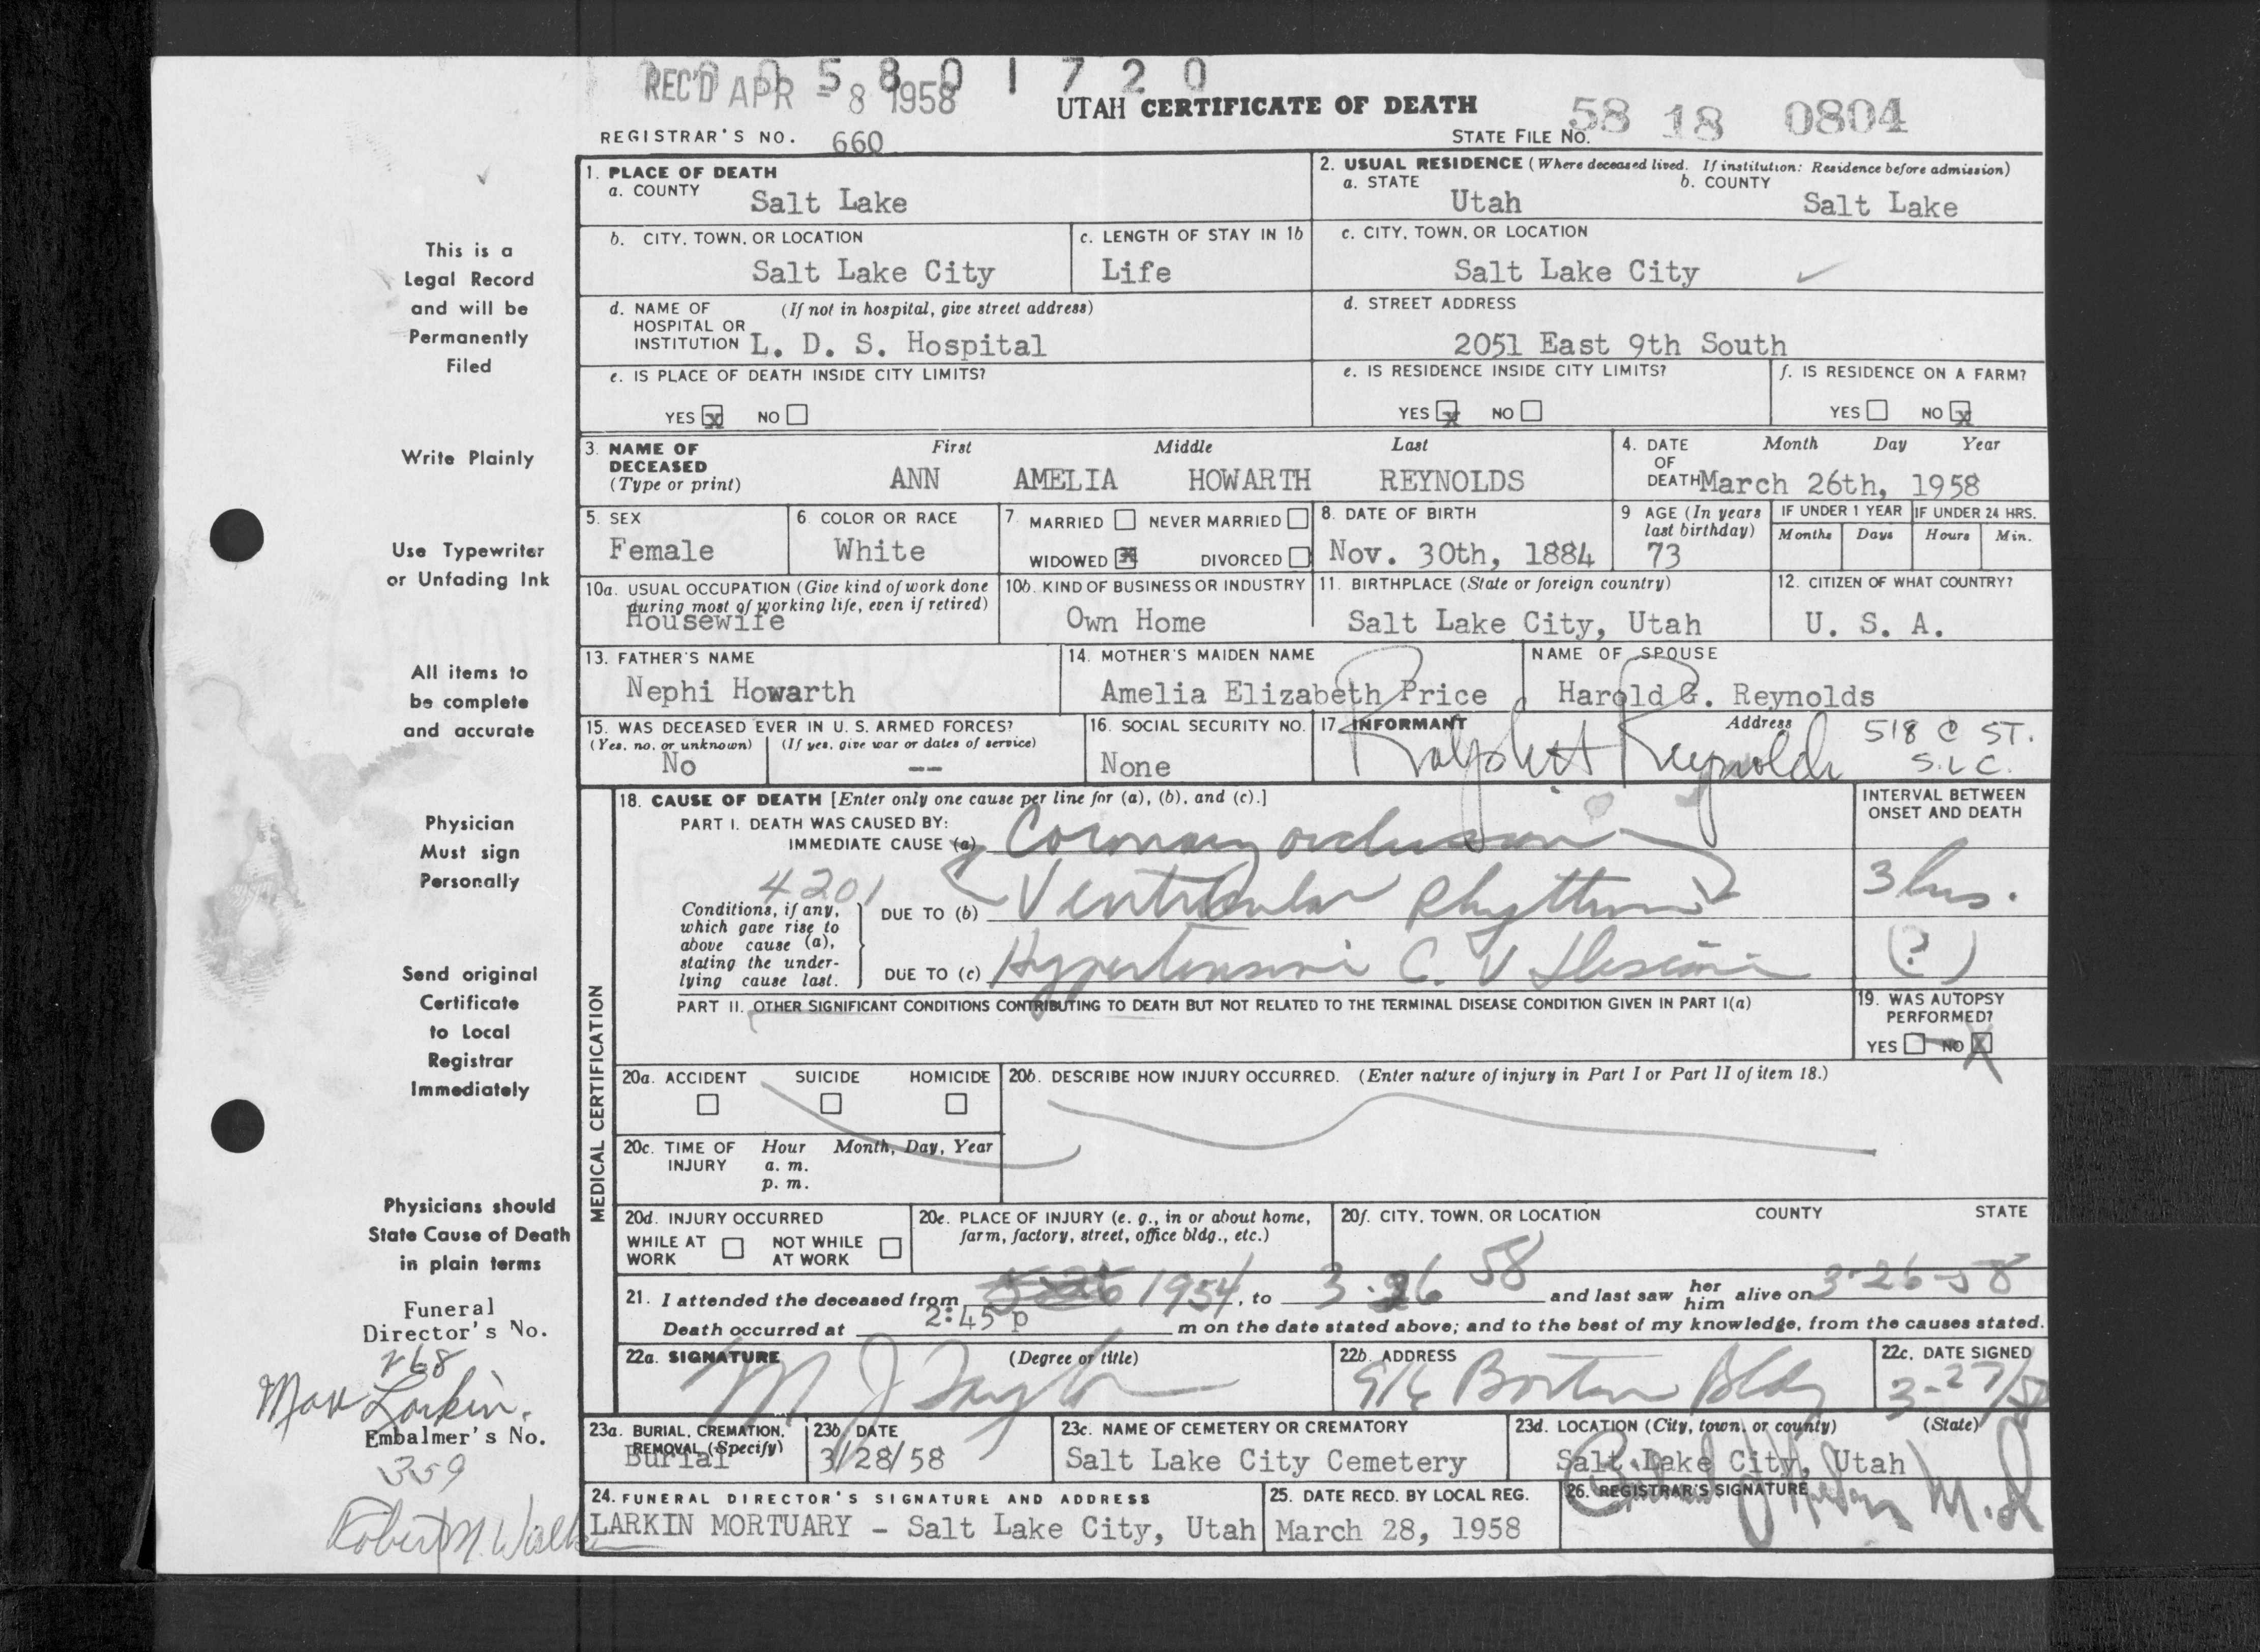 0 0 5 8 0 1 7 2 0
REC'D APR -8 1958
UTAH CERTIFICATE OF DEATH
58 18 0804
REGISTRAR'S NO. 660
STATE FILE NO.
This is a
Legal Record
and will be
Permanently
Filed
Write Plainly
Use Typewriter
or Unfading Ink
All items to
be complete
and accurate
Physician
Must sign
Personally
Send original
Certificate
to Local
Registrar
Immediately
Physicians should
State Cause of Death
in plain terms
Funeral
Director's No.
268
Max Larkin.
Embalmer's No.
359
Robert M. Walker
1. PLACE OF DEATH
a. COUNTY Salt Lake
2. USUAL RESIDENCE (Where deceased lived. If institution: Residence before admission)
a. STATE Utah b. COUNTY Salt Lake
b. CITY, TOWN, OR LOCATION
Salt Lake City
c. LENGTH OF STAY IN 1b
Life
c. CITY, TOWN, OR LOCATION
Salt Lake City
d. NAME OF (If not in hospital, give street address)
HOSPITAL OR
INSTITUTION L. D. S. Hospital
d. STREET ADDRESS
2051 East 9th South
e. IS PLACE OF DEATH INSIDE CITY LIMITS?
YES x NO
e. IS RESIDENCE INSIDE CITY LIMITS?
YES x NO
f. IS RESIDENCE ON A FARM?
YES NO x
3. NAME OF First Middle Last
DECEASED
(Type or print) ANN AMELIA HOWARTH REYNOLDS
4. DATE Month Day Year
OF
DEATH March 26th, 1958
5. SEX
Female
6. COLOR OR RACE
White
7. MARRIED NEVER MARRIED
WIDOWED x DIVORCED
8. DATE OF BIRTH
Nov. 30th, 1884
9 AGE (In years
last birthday)
73
IF UNDER 1 YEAR IF UNDER 24 HRS.
Months Days Hours Min.
10a. USUAL OCCUPATION (Give kind of work done
during most of working life, even if retired)
Housewife
10b. KIND OF BUSINESS OR INDUSTRY
Own Home
11. BIRTHPLACE (State or foreign country)
Salt Lake City, Utah
12. CITIZEN OF WHAT COUNTRY?
U. S. A.
13. FATHER'S NAME
Nephi Howarth
14. MOTHER'S MAIDEN NAME
Amelia Elizabeth Price
NAME OF SPOUSE
Harold G. Reynolds
15. WAS DECEASED EVER IN U. S. ARMED FORCES?
(Yes, no, or unknown) (If yes, give war or dates of service)
No --
16. SOCIAL SECURITY NO.
None
17. INFORMANT Address
Ralph Reynolds 518 C ST.
S.L.C.
MEDICAL CERTIFICATION
18. CAUSE OF DEATH [Enter only one cause per line for (a), (b), and (c).]
INTERVAL BETWEEN
ONSET AND DEATH
PART I. DEATH WAS CAUSED BY:
IMMEDIATE CAUSE (a) Coronary occlusion
4201
Conditions, if any,
which gave rise to
above cause (a),
stating the under-
lying cause last.
DUE TO (b) Ventricular Rhythm 3 hrs.
DUE TO (c) Hypertensive C. V. (?)
PART II. OTHER SIGNIFICANT CONDITIONS CONTRIBUTING TO DEATH BUT NOT RELATED TO THE TERMINAL DISEASE CONDITION GIVEN IN PART I(a)
19. WAS AUTOPSY
PERFORMED?
YES NO X
20a. ACCIDENT SUICIDE HOMICIDE
20b. DESCRIBE HOW INJURY OCCURRED. (Enter nature of injury in Part I or Part II of item 18.)
20c. TIME OF Hour Month, Day, Year
INJURY a. m.
p. m.
20d. INJURY OCCURRED
WHILE AT NOT WHILE
WORK AT WORK
20e. PLACE OF INJURY (e. g., in or about home,
farm, factory, street, office bldg., etc.)
20f. CITY, TOWN, OR LOCATION COUNTY STATE
21. I attended the deceased from 1954, to 3-26 58 and last saw her him alive on 3-26-58
Death occurred at 2:45 p m on the date stated above; and to the best of my knowledge, from the causes stated.
22a. SIGNATURE (Degree or title)
M J Taylor
22b. ADDRESS
916 Boston Bldg
22c. DATE SIGNED
3-27/58
23a. BURIAL, CREMATION,
REMOVAL (Specify)
Burial
23b. DATE
3/28/58
23c. NAME OF CEMETERY OR CREMATORY
Salt Lake City Cemetery
23d. LOCATION (City, town, or county) (State)
Salt Lake City, Utah
24. FUNERAL DIRECTOR'S SIGNATURE AND ADDRESS
LARKIN MORTUARY - Salt Lake City, Utah
25. DATE RECD. BY LOCAL REG.
March 28, 1958
26. REGISTRAR'S SIGNATURE
M.D.